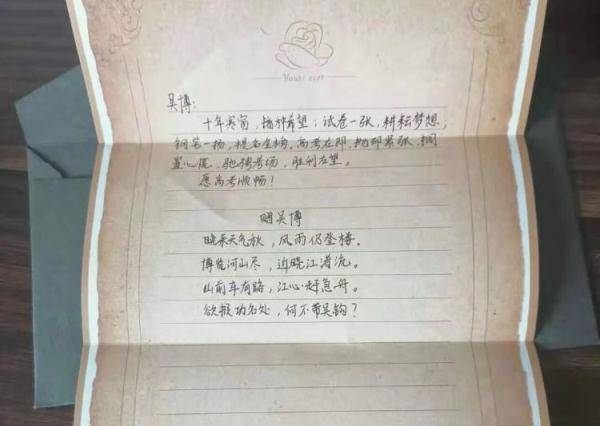 Yousi rose
吴博：
十年寒窗，播种希望；试卷一张，耕耘梦想，
钢笔一扬，提名金榜，高考在即，抛却紧张，搁
置心慌，驰骋考场，胜利在望。
愿高考顺畅！
赠吴博
晚来天气秋，风雨仍登楼。
博览河山尽，近晓江渚流。
山前车有路，江心赶急舟。
欲报功名处，何不带吴钩？